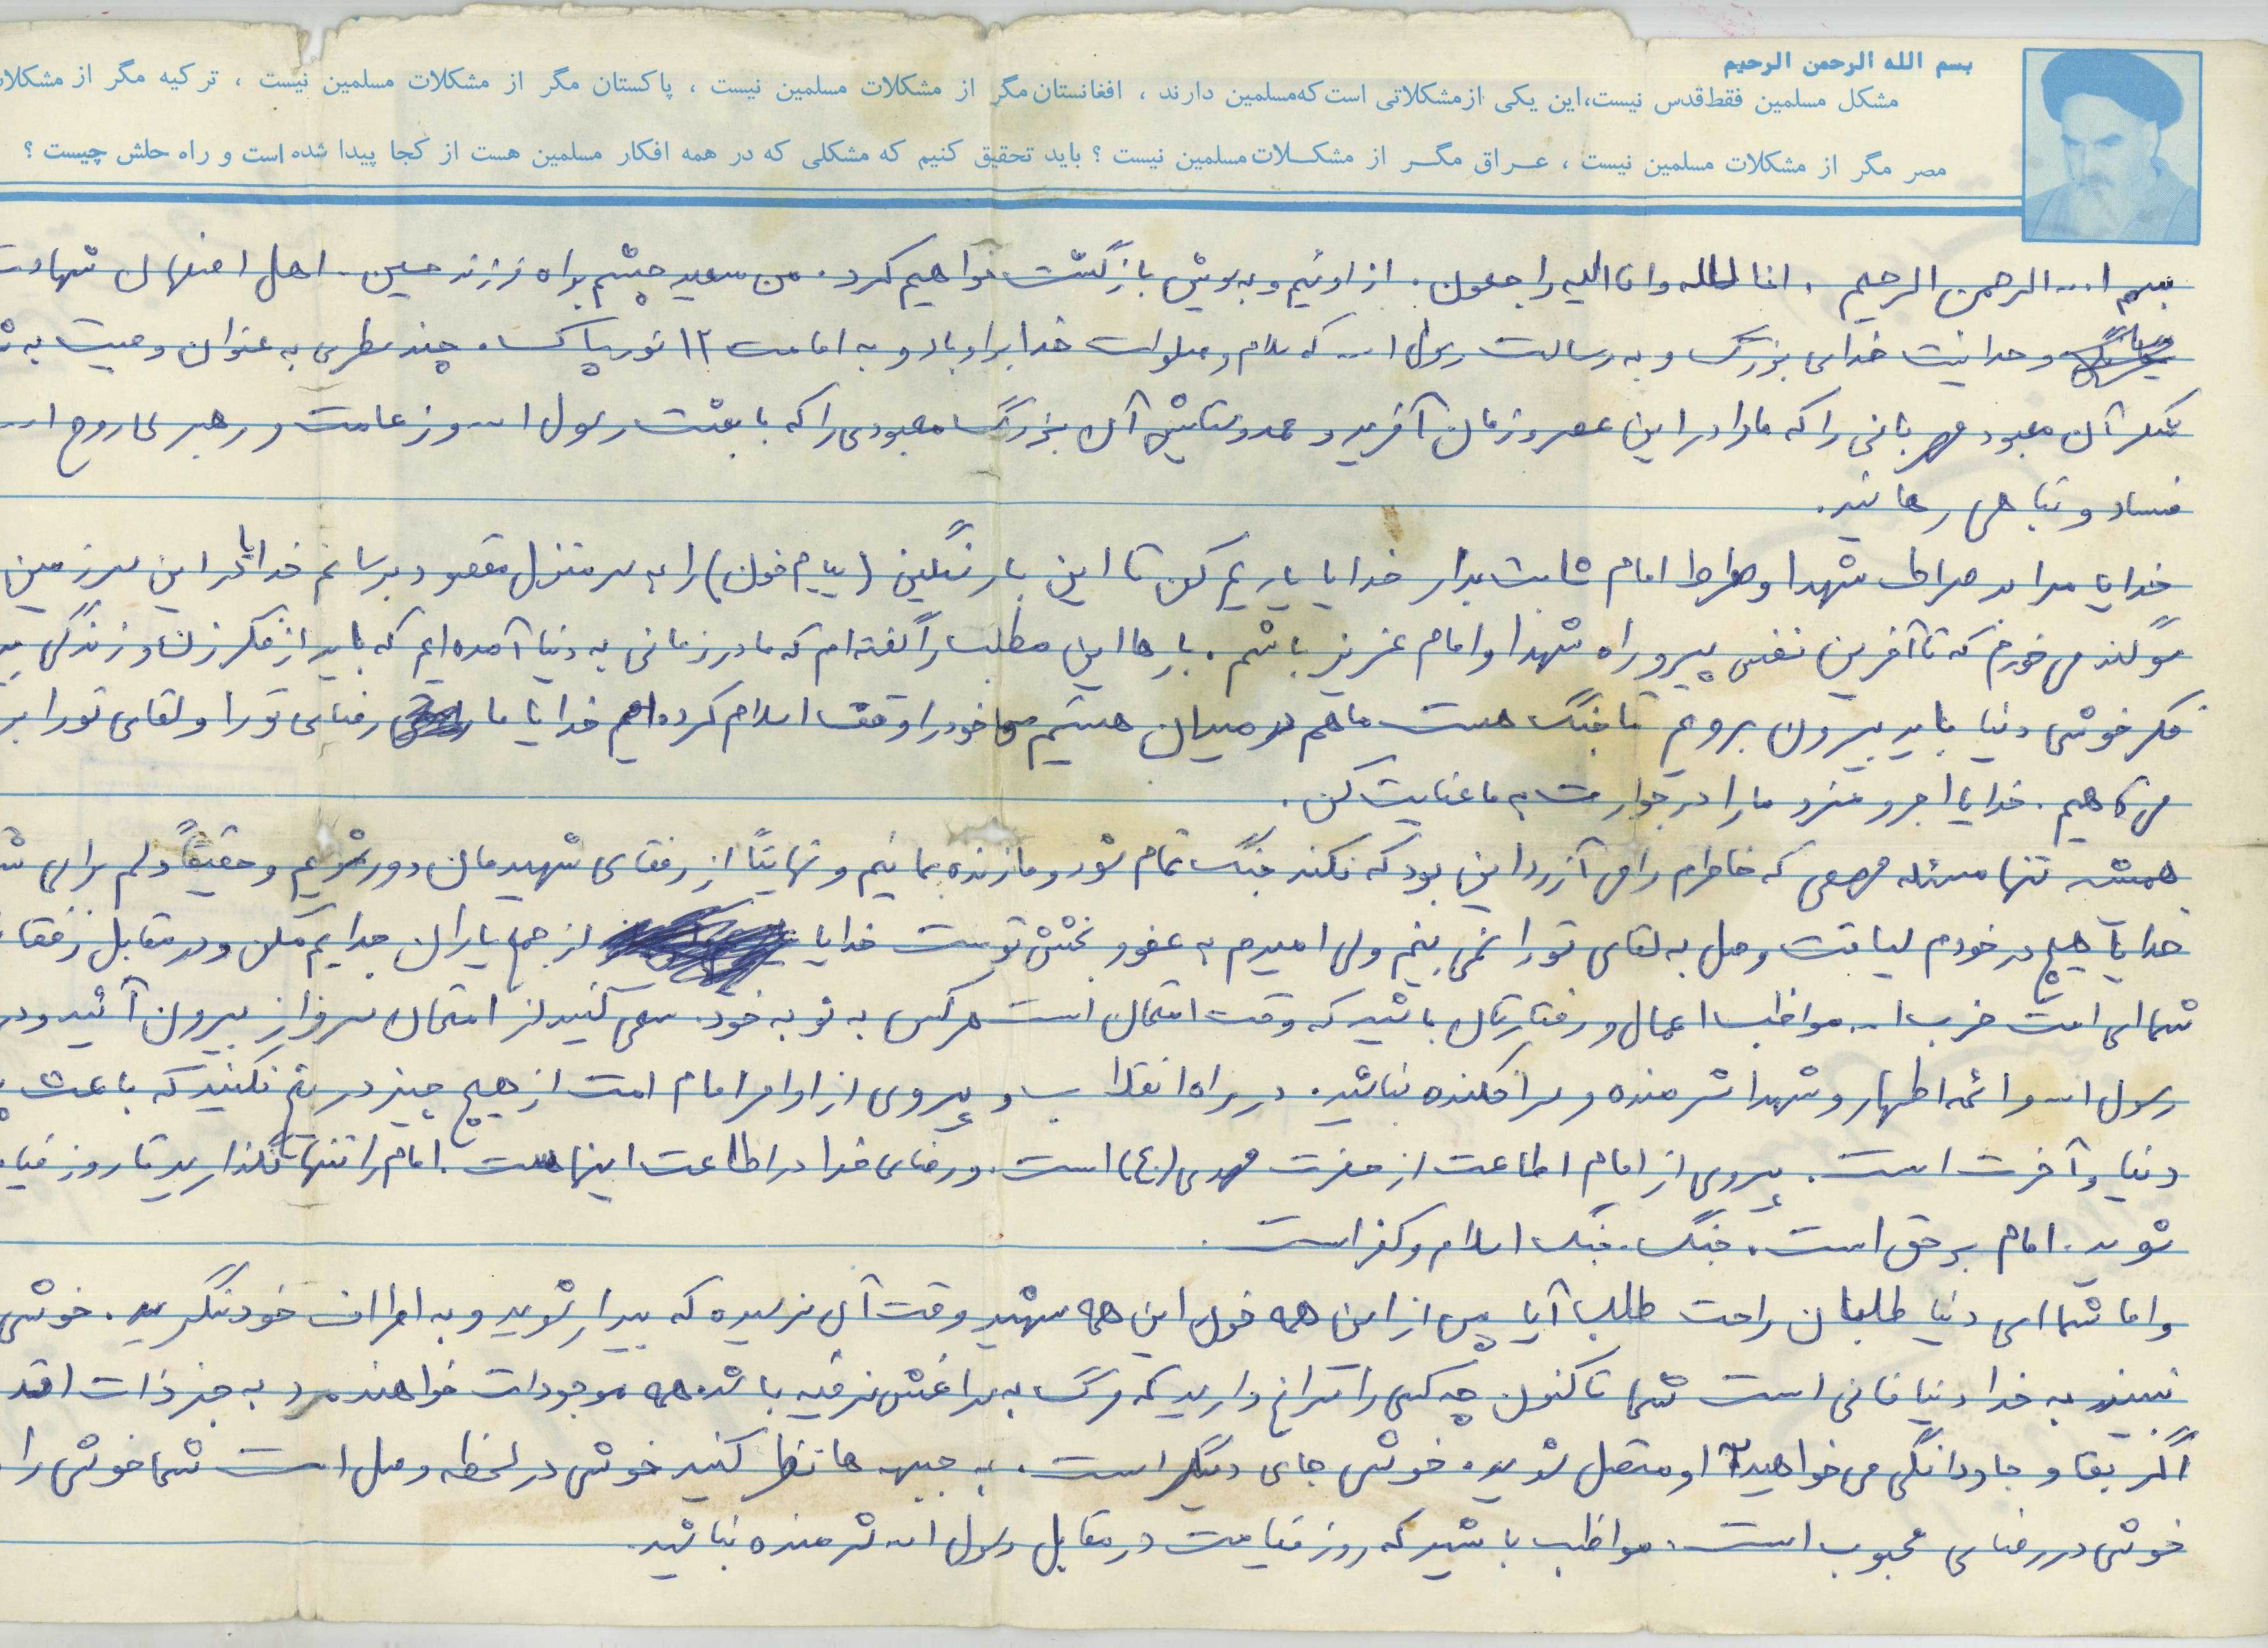 بسم الله الرحمن الرحیم
مشکل مسلمین فقط قدس نیست، این یکی از مشکلاتی است که مسلمین دارند ، افغانستان مگر از مشکلات مسلمین نیست ، پاکستان مگر از مشکلات مسلمین نیست ، ترکیه مگر از مشکلات
مصر مگر از مشکلات مسلمین نیست ، عراق مگر از مشکلات مسلمین نیست ؟ باید تحقیق کنیم که مشکلی که در همه افکار مسلمین هست از کجا پیدا شده است و راه حلش چیست ؟
بسم ا... الرحمن الرحیم . انا لله وانا الیه راجعون. از اوئیم و به سویش بازگشت خواهیم کرد. من سعید چشم براه فرزند حسین - اهل اصفهان شهادت
وحدانیت خدای بزرگ و به رسالت رسول ا... که سلام و صلوات خدا بر او باد و به امامت ۱۲ نور پاک . چند سطری به عنوان وصیت به
شکر آن معبود مهربانی را که ما را در این عصر و زمان آفرید و حمد و ستایش آن بزرگ معبودی را که با بعثت رسول ا... و زعامت و رهبری روح ا...
فساد و تباهی رهانید.
خدایا مرا بر صراط شهدا و صراط امام ثابت بدار خدایا یاریم کن تا این بار سنگین (پیام خون) را به سر منزل مقصود برسانم خدایا در این سرزمین
سوگند می خورم که تا آخرین نفس پیرو راه شهدا و امام عزیز باشم . بارها این مطلب را گفته ام که ما در زمانی به دنیا آمده ایم که باید از فکر زن و زندگی
فکر خوشی دنیا باید بیرون برویم تا جنگ هست ما هم در میدان هستیم ما خود را وقف اسلام کرده ایم خدایا ما رضای تو را و لقای تو را
می خواهیم . خدایا اجر و مزد ما را در جوارت به ما عنایت کن .
همیشه تنها مسئله مهمی که خاطرم را می آزرد این بود که نکند جنگ تمام شود و ما زنده بمانیم و نهایتاً از رفقای شهیدمان دور شویم و حقیقتاً دلم برای
خدایا هیچ در خودم لیاقت وصل به لقای تو را نمی بینم ولی امیدم به عفو و بخشش توست خدایا از جمع یاران جدایم مکن و در مقابل رفقا
شما ای امت حزب ا... مواظب اعمال و رفتارتان باشید که وقت امتحان است هر کس به نوبه خود. سعی کنید از امتحان سرفراز بیرون آئید و در
رسول ا... و ائمه اطهار و شهدا شرمنده و سرافکنده نباشید. در راه انقلاب و پیروی از اوامر امام امت از هیچ چیز دریغ نکنید که باعث
دنیا و آخرت است . پیروی از امام اطاعت از حضرت مهدی (ع) است . و رضای خدا در اطاعت اینهاست . امام را تنها نگذارید تا روز
شوید . امام بر حق است . جنگ ، جنگ اسلام و کفر است .
و اما شما ای دنیا طلبان راحت طلب آیا پس از این همه خون این همه شهید وقت آن نرسیده که بیدار شوید و به اطراف خود بنگرید . خوشی
نبیند به خدا دنیا فانی است شما تاکنون چه کسی را سراغ دارید که مرگ به سراغش نرفته باشد همه موجودات خواهند مرد به جز ذات
اگر بقا و جاودانگی می خواهید به او متصل شوید . خوشی جای دیگر است . به جبهه ها نظر کنید خوشی در لحظه وصل است شما خوشی را
خوشی در رضای محبوب است . مواظب باشید که روز قیامت در مقابل رسول ا... شرمنده نباشید.